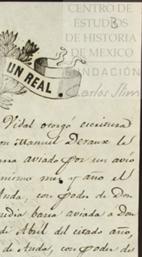 CENTRO DE
ESTUDIOS
DE HISTORIA
DE MEXICO
FUNDACIÓN
Carlos Slim
UN REAL.
Vidal otorgó escritura
Manuel Deraux le
aviado por un avio
mismo mes y año el
Anda, con poder de Don
barra aviada a don
de Abril del citado año,
de Anda, con poder de